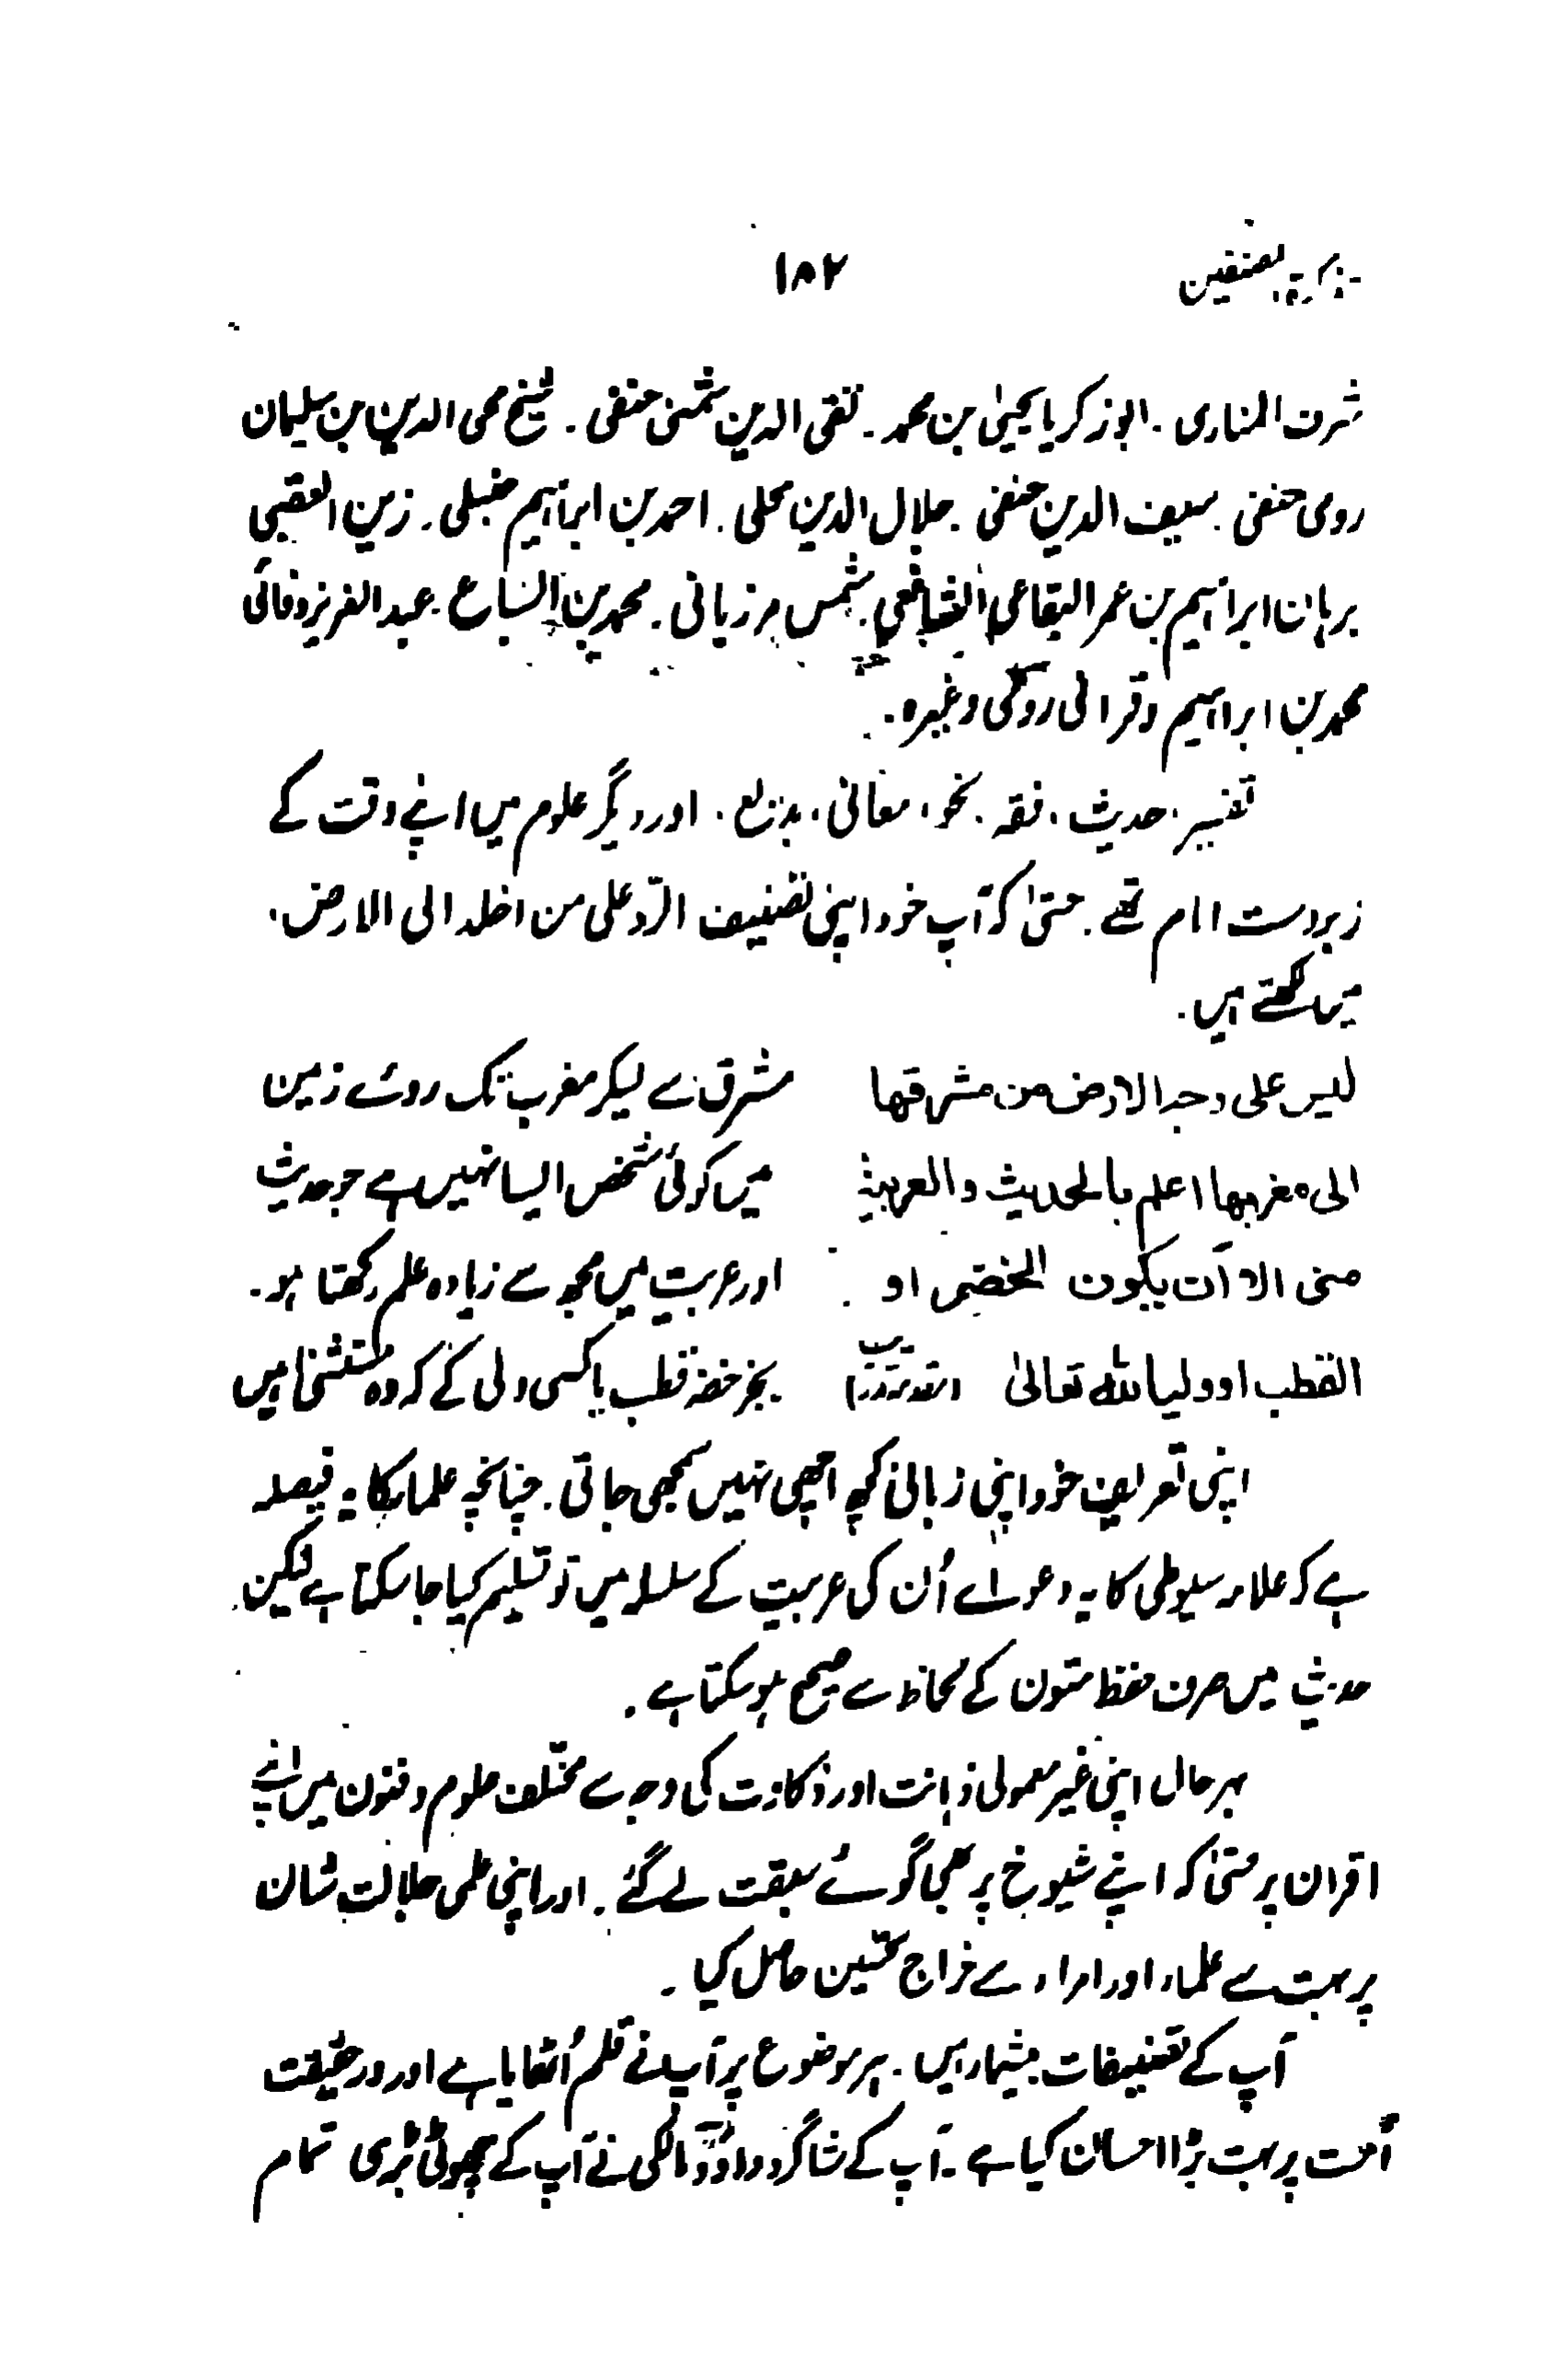 ۱۸۲
شرف المناری . ابوزکریا یحییٰ بن محمد . تقی الدین شمنی حنفی . شیخ محی الدین بن سلیمان
رومی حنفی . سیف الدین حنفی . جلال الدین محلی . احمد بن ابراہیم حنبلی . زین العقبی
برہان ابراہیم بن عمر البقاعی الشافعی . شمس مرزبانی . محمد بن السباع . عبدالعزیز وفائی
محمد بن ابراہیم وغیرہ .
تفسیر ، حدیث ، فقہ ، نحو ، معانی ، بدیع ، اور دیگر علوم میں اپنے وقت کے
زبردست امام تھے . حتیٰ کہ آپ خود اپنی تصنیف الرّد علی من اخلد الی الارض ،
میں لکھتے ہیں .
لیس علی وجہ الارض من مشرقھا
الی مغربھا اعلم بالحدیث والعربیۃ
منی الا ان یکون الخضر او
القطب او ولیا للہ تعالیٰ
مشرق سے لیکر مغرب تک روئے زمین
میں کوئی شخص ایسا نہیں ہے جو حدیث
اور عربیت میں مجھ سے زیادہ علم رکھتا ہو .
بجز خضر قطب یا کسی ولی کے کہ وہ مستثنیٰ ہیں
اپنی تعریف خود اپنی زبانی کچھ اچھی نہیں سمجھی جاتی . چنانچہ علما کا یہ فیصلہ
ہے کہ علامہ سیوطی کا یہ دعوےٰ اُن کی عربیت کے سلسلہ میں تو تسلیم کیا جاسکتا ہے لیکن
حدیث میں صرف حفظ متون کے لحاظ سے صحیح ہوسکتا ہے .
بہرحال اپنی غیر معمولی ذہانت اور ذکاوت کی وجہ سے مختلف علوم و فنون میں اپنے
اقران پر حتیٰ کہ اپنے شیوخ پر بھی گوئے سبقت لے گئے . اور اپنی علمی جلالت شان
پر بہت سے علماء اور امراء سے خراج تحسین حاصل کیا .
آپ کے تصنیفات بیشمار ہیں . ہر موضوع پر آپ نے قلم اُٹھایا ہے اور درحقیقت
اُمت پر بہت بڑا احسان کیا ہے . آپ کے شاگرد داؤدی مالکی نے آپ کے چھوٹی بڑی تمام